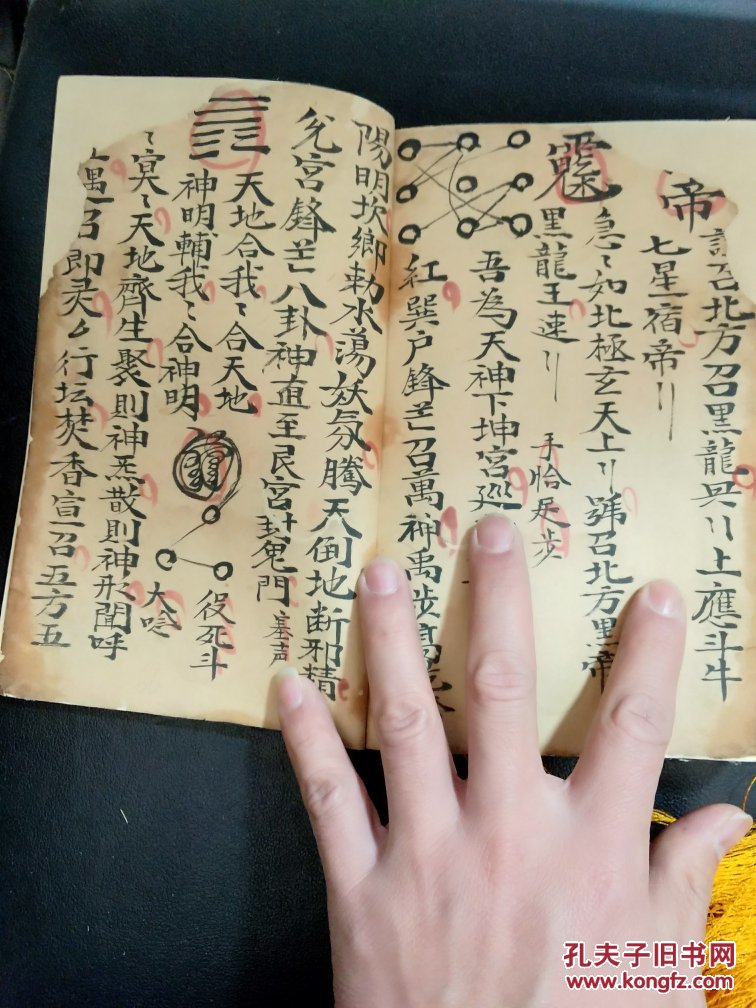 帝
召北方召黑龍兵〢上應斗牛
七星一宿帝〢
急〻如北極玄天上〢號召北方黑帝
黑龍王速〢
手恰足步
吾為天神下坤宮巡
紅巽户鋒芒召萬神禹步
陽明坎鄉勅水蕩妖氛騰天倒地断邪精
兊宮鋒芒八卦神直至艮宮封鬼門
塞声
天地合我〻合天地
神明輔我〻合神明
役死斗
〻冥〻天地齊生聚則神炁散則神形聞呼
大
召即灵么行坛焚香宣召五方五
孔夫子旧书网
www.kongfz.com